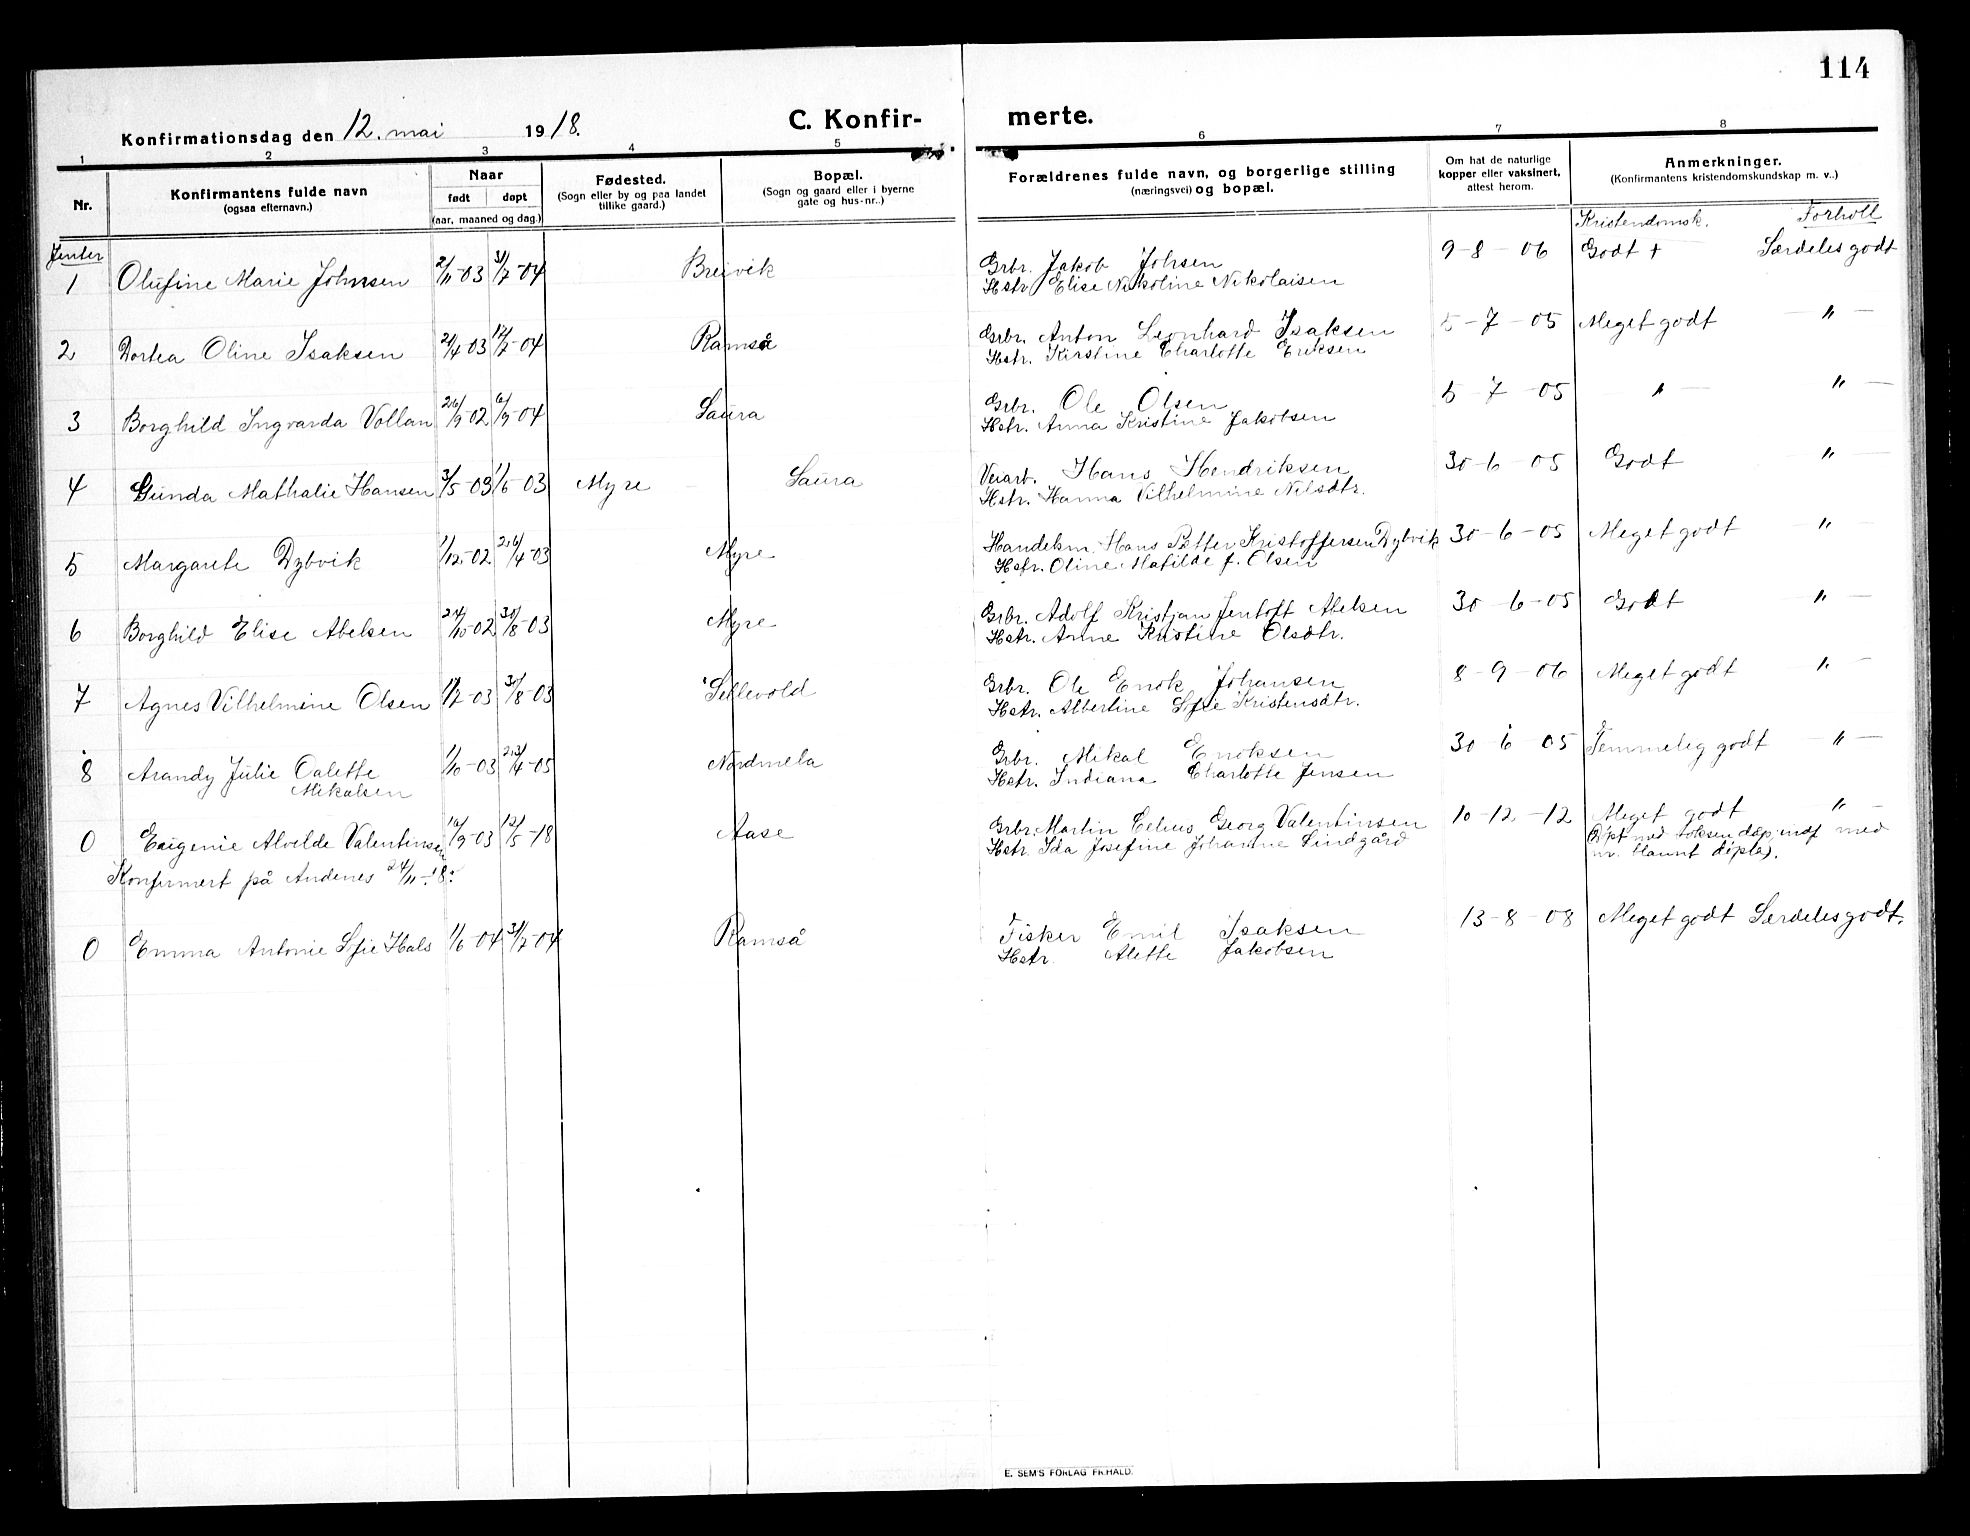 114
Konfirmationsdag den 12. mai 1918.
C. Konfirmerte.
1 2 3 4 5 6 7 8
Nr.
Konfirmantens fulde navn
(ogsaa efternavn.)
Naar
født døpt
(aar, maaned og dag.)
Fødested.
(Sogn eller by og paa landet
tillike gaard.)
Bopæl.
(Sogn og gaard eller i byerne
gate og hus-nr..)
Forældrenes fulde navn, og borgerlige stilling
(næringsvei) og bopæl.
Om hat de naturlige
kopper eller vaksinert,
attest herom.
Anmerkninger.
(Konfirmantens kristendomskundskap m. v..)
Kristendomsk. Forholl
Jenter
1 Olufine Marie Johnsen 2/11-03 31/7-04 Breivik Grbr. Jakob Johsen 9-8-06 Godt + Særdeles godt
Hstr. Elise Nikoline Nikolaisen
2 Dortea Oline Isaksen 24/4-03 17/7-04 Ramså Grbr. Anton Leonhard Isaksen 5-7-05 Meget godt — " —
Hstr. Kirstine Charlotte Eriksen
3 Borghild Ingvarda Vollan 26/9-02 6/9-04 Saura Grbr. Ole Olsen 5-7-05 " — " —
Hstr. Anna Kristine Jakobsen
4 Gunda Mathalie Hansen 3/5-03 1/6-03 Myre Saura Veiarb. Hans Hendriksen 30-6-05 Godt " —
Hstr. Hanna Vilhelmine Nilsdtr.
5 Margarete Dybvik 1/12-02 26/4-03 Myre Handelsm. Hans Petter Kristoffersen Dybvik 30-6-05 Meget godt " —
Hstr. Oline Matilde f. Olsen
6 Borghild Elise Abelsen 24/10-02 30/8-03 Myre Grbr. Adolf Kristjan Jentoft Abelsen 30-6-05 Godt " —
Hstr. Anne Kristine Olsdtr.
7 Agnes Vilhelmine Olsen 11/7-03 30/8-03 Sellevold Grbr. Ole Enok Johansen 8-9-06 Meget godt " —
Hstr. Albertine Sofie Kristensdtr.
8 Arandy Julie Oalette 1/10-03 23/4-05 Nordmela Grbr. Mikal Enoksen 30-6-05 Temmeleg godt — " —
Mikalsen Hstr. Indiana Charlotte Jensen
0 Eugenie Alvilde Valentinsen 16/9-03 12/5-18 Aase Grbr. Martin Georg Valentinsen 10-12-12 Meget godt " —
Hstr. Ida Josefine Johanne Lindgård med
nr. blannt døpte).
Konfirmert på Andenes 24/11-18.
0 Emma Antonie Sofie Hals 1/6-04 31/7-04 Ramså Fisker Emil Isaksen 13-8-08 Meget godt Særdeles godt.
Hstr. Alette Jakobsen
E. SEM'S FORLAG FR.HALD.